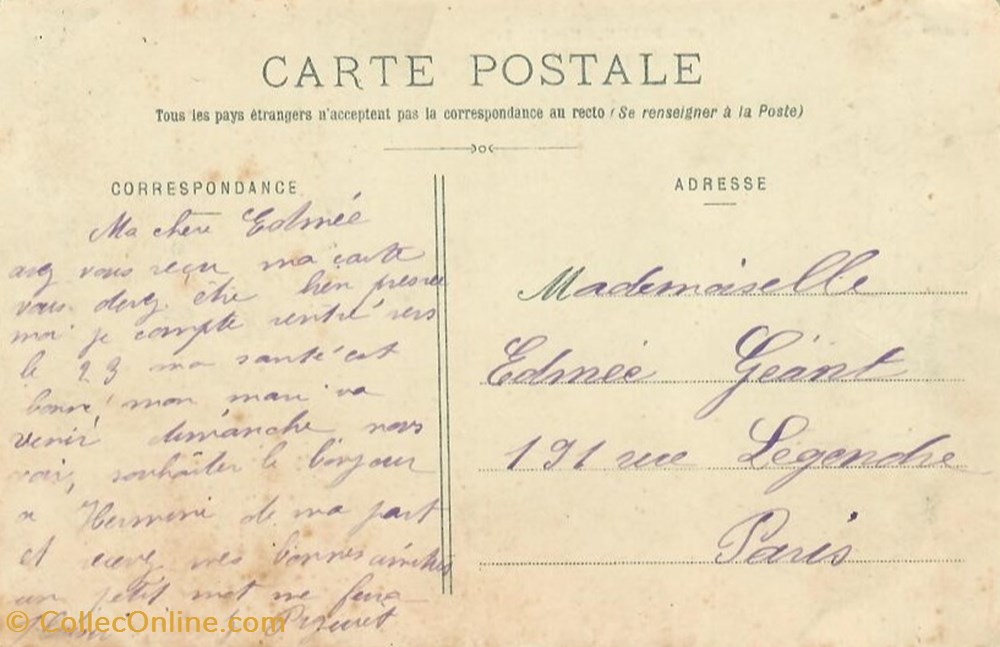 CARTE POSTALE
Tous les pays étrangers n'acceptent pas la correspondance au recto (Se renseigner à la Poste)
CORRESPONDANCE
Ma chère Edmée
avez vous reçu ma carte
vous devez être bien pressée
moi je compte rentré vers
le 23 ma santé est
bonne mon mari va
venir dimanche nous
souhaiter le bonjour
a Hermine de ma part
et mes bonnes amitiés
un petit mot me fera
ADRESSE
Mademoiselle
Edmée Géant
191 rue Legendre
Paris
© CollecOnline.com